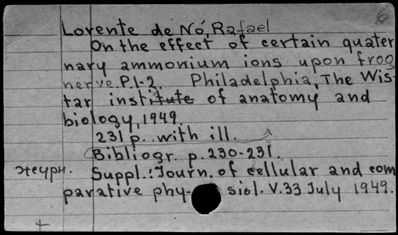 Lorente de Nó, Rafael
On the effect of certain quater
nary ammonium ions upon frog
nerve. P.1-2. Philadelphia, The Wis-
tar institute of anatomy and
biology, 1949.
231 p. with ill.
Bibliogr. p. 230-231.
журн. Suppl.: Journ. of cellular and com
parative phy- siol. V.33 July 1949.